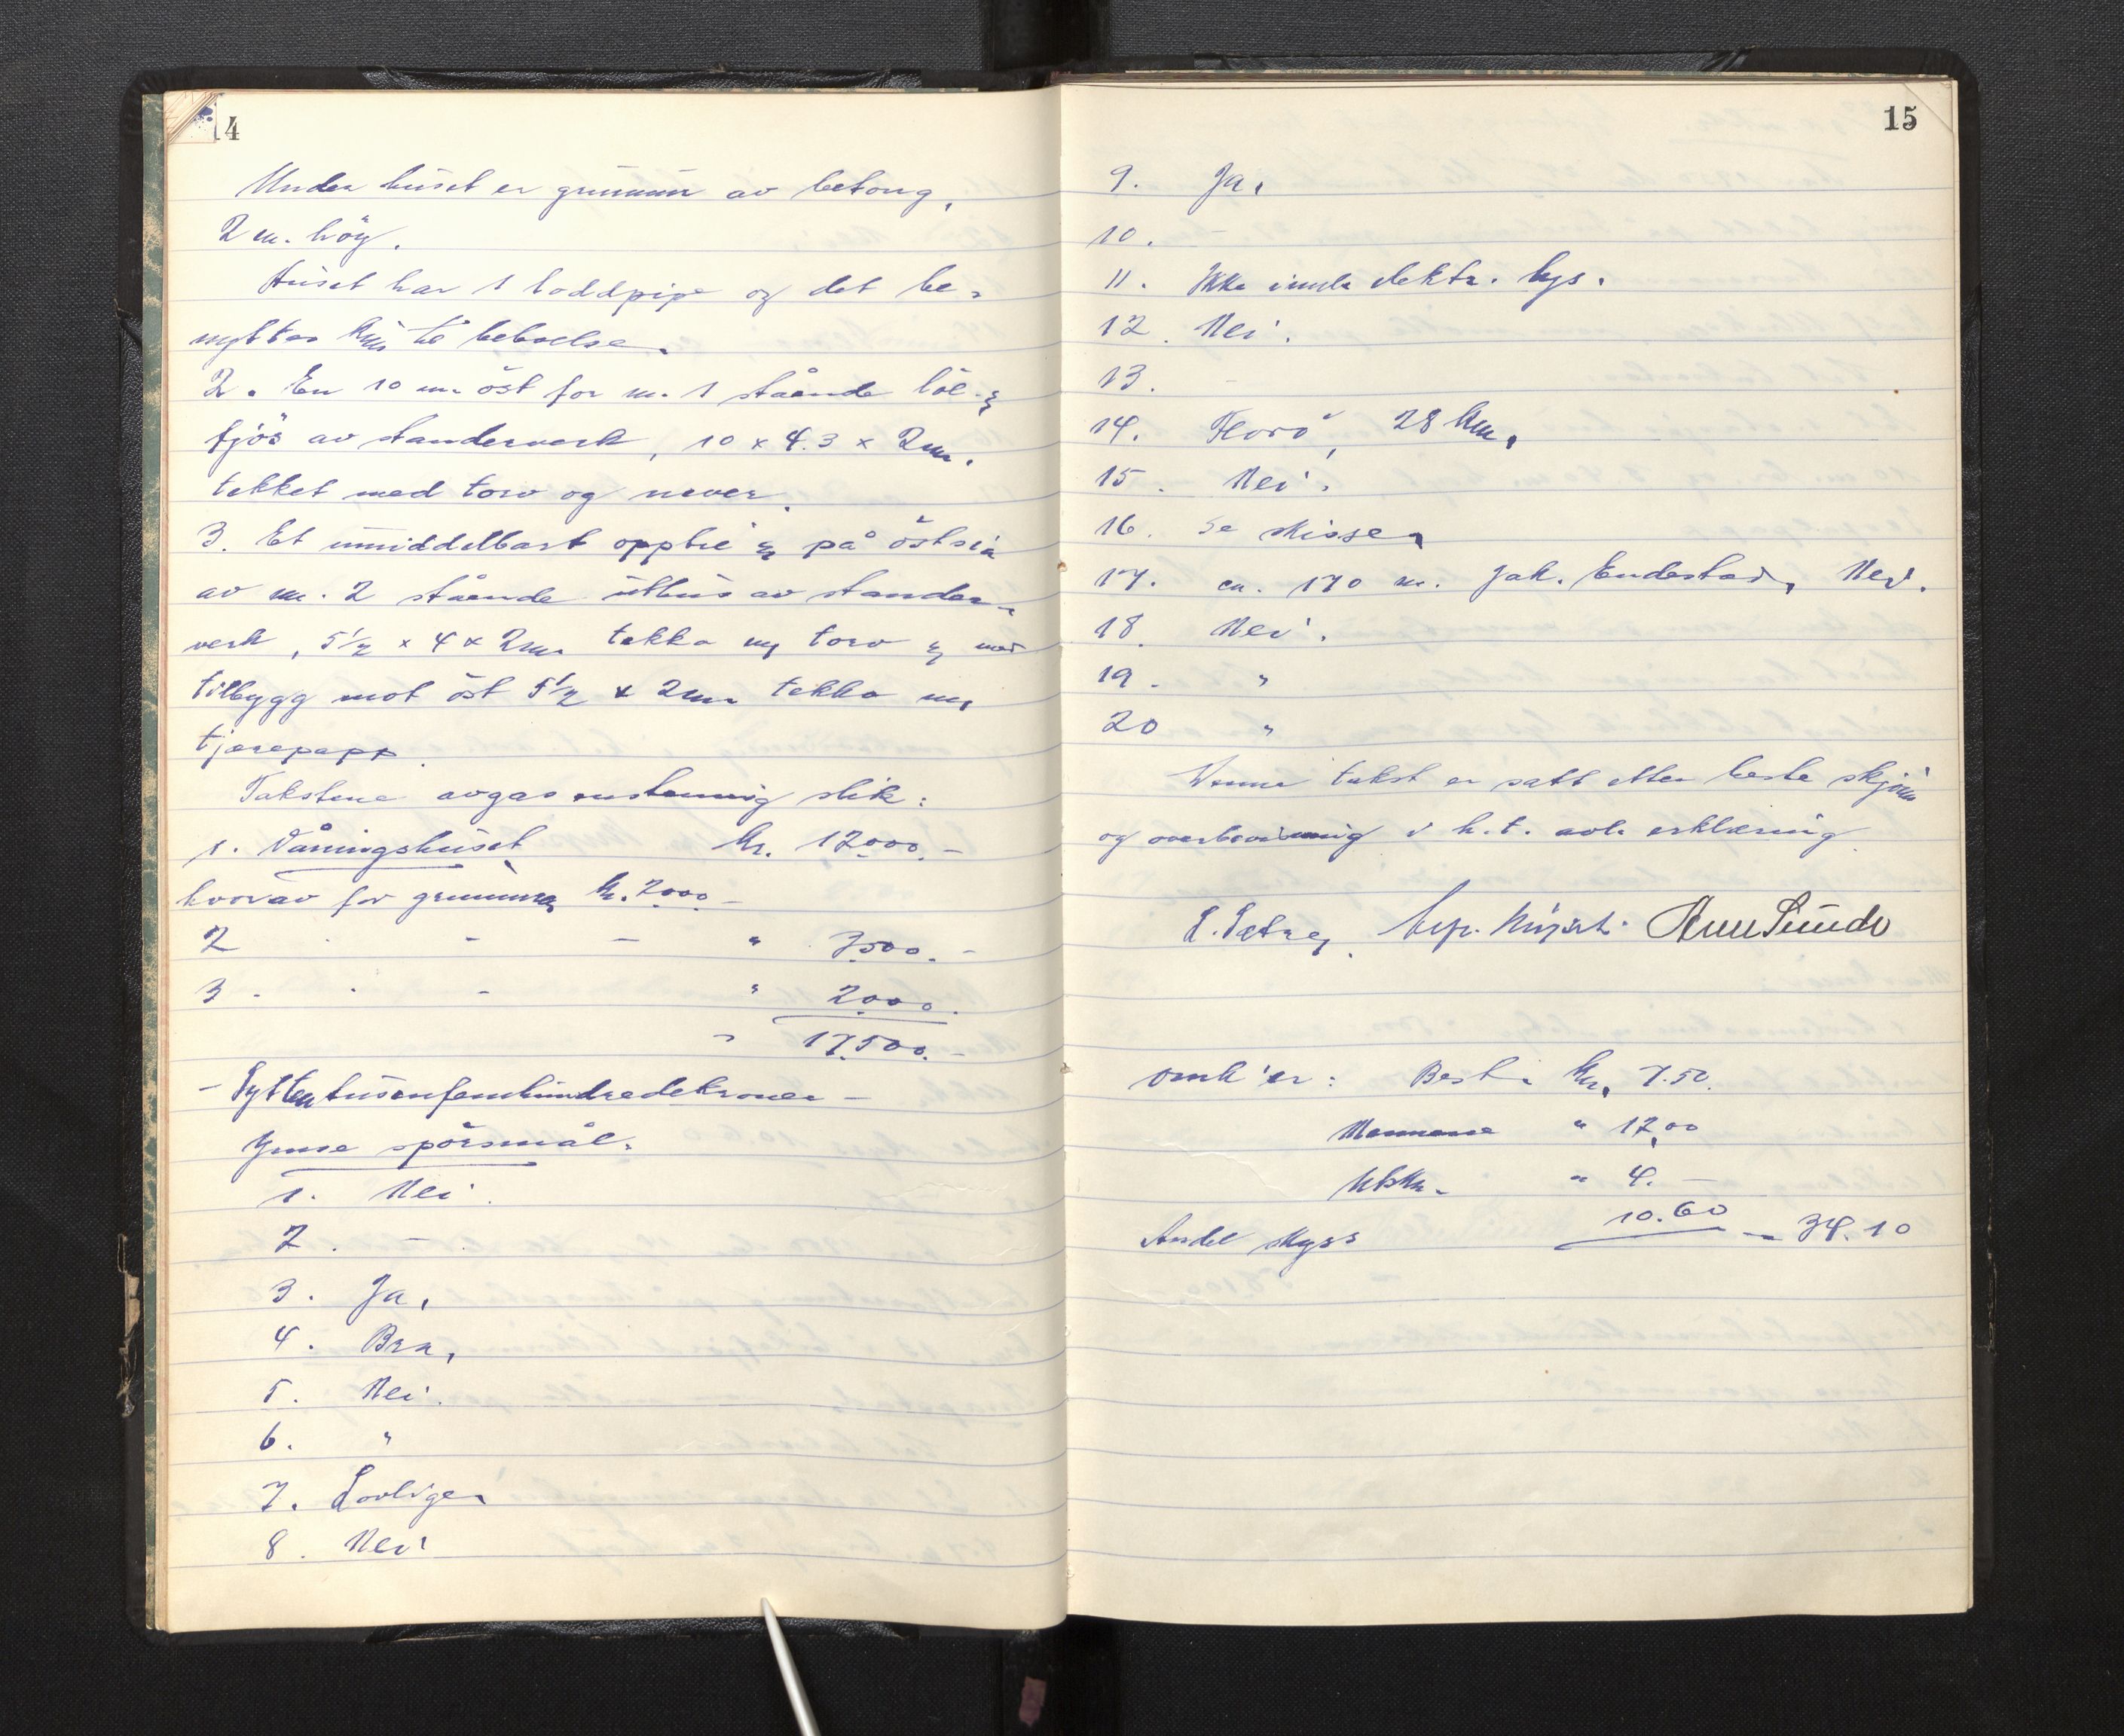 14
Under huset er grunnmur av betong,
2 m. høy.
Huset har 1 loddpipe og det be-
nyttes kun til beboelse.
2. En 10 m. öst for nr. 1 stående löe- &
fjös av standerverk, 10 x 4.3 x 2 m.
tekket med torv og never.
3. Et umiddelbart opptil & på östsia
av nr. 2 stående uthus av stander-
verk, 5 1/2 x 4 x 2 m tekka m/ torv & med
tilbygg mot öst 5 1/2 x 2 m tekka m/
tjærepapp.
Takstene avgas enstemmig slik:
1. Våningshuset kr. 12000.-
hvorav for grunnmur kr. 2000.-
2 - - " 3500.-
3 - - " 2000.
" 17.500.-
- Syttentusenfemhundredekroner -
Ymse spörsmål.
1. Nei.
2. -
3. Ja.
4. Bra.
5. Nei.
6. "
7. Lovlige.
8. Nei
15
9. Ja.
10. -
11. Ikke innla elektr. lys.
12. Nei.
13. -
14. Florö, 28 km.
15. Nei.
16. Se skisse.
17. ca. 170 m. Jak. Endestad, Nei.
18. Nei.
19. "
20 "
Denne takst er satt etter beste skjönn
og overbevisning i h.t. avla erklæring.
Sunde
Omk'er: Best. kr. 7.50.
Mennene " 12.00
Utskr. " 4.-
Andel skyss 10.60 - 34.10